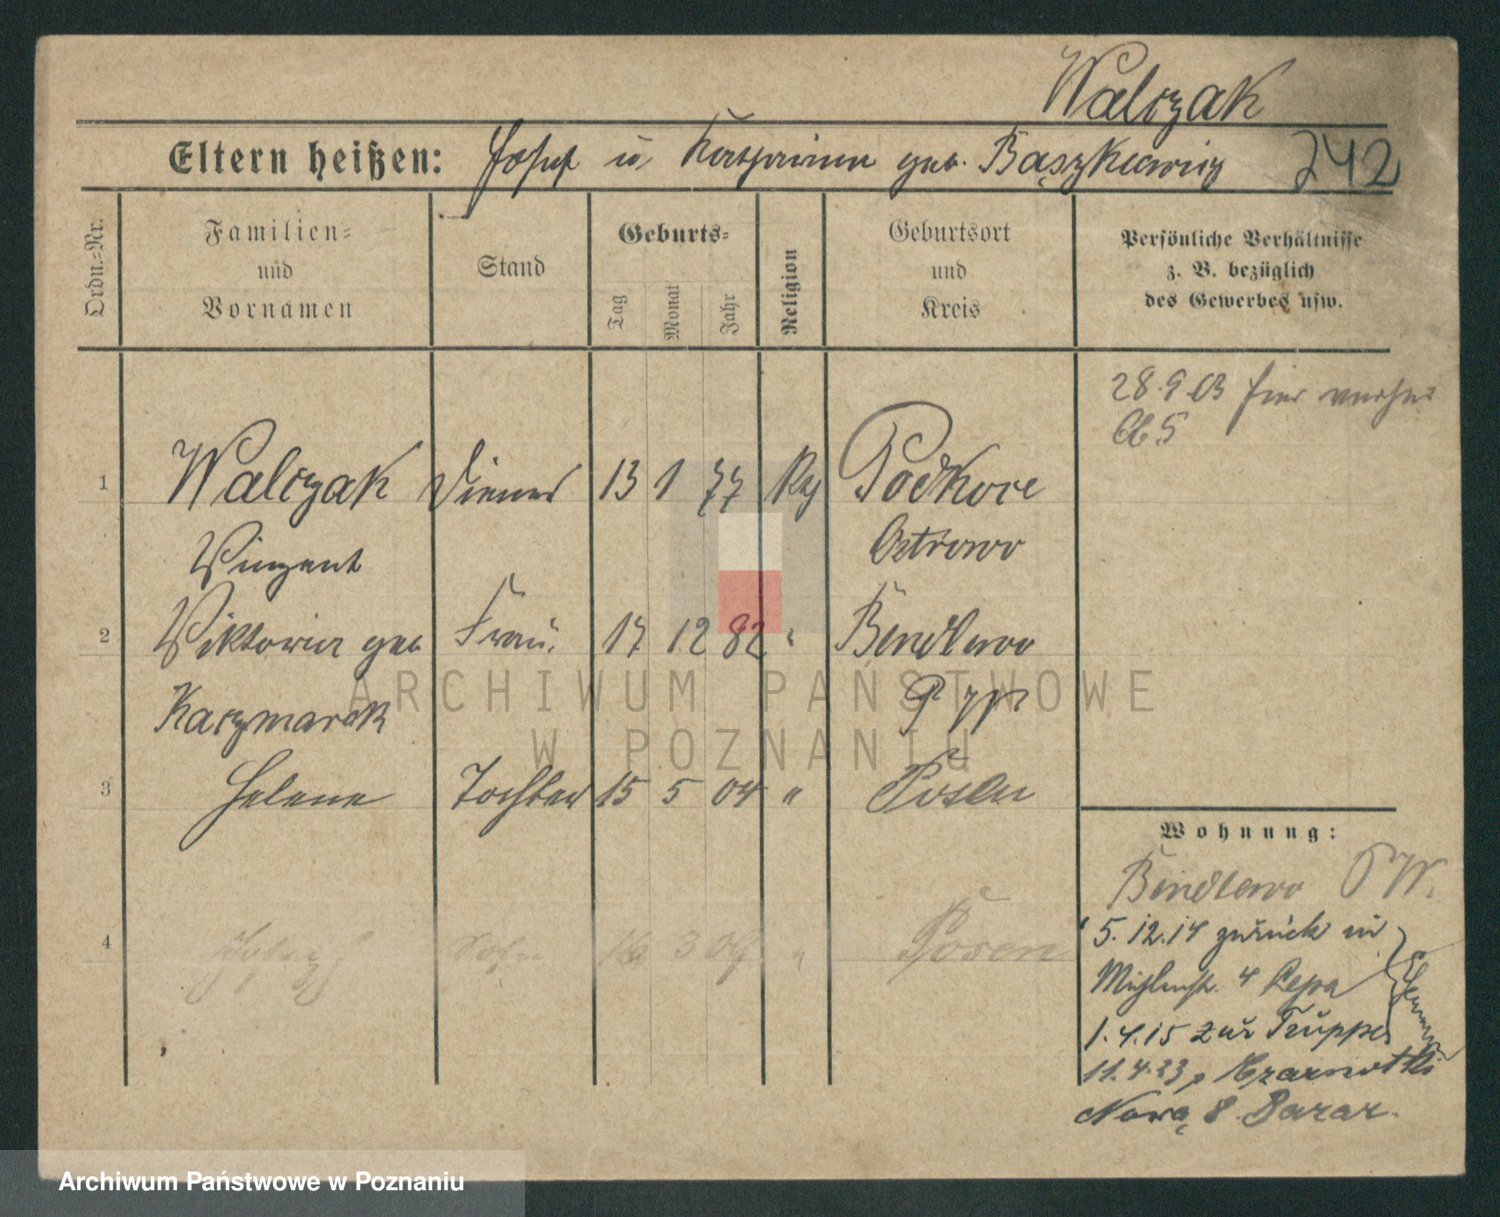 Walczak
Eltern heißen: Josef u. Katharina geb. Bąszkiewicz 242
Ordn.=Nr.
Familien=
und
Vornamen
Stand
Geburts=
Tag Monat Jahr
Religion
Geburtsort
und
Kreis
Persönliche Verhältnisse
z. B. bezüglich
des Gewerbes usw.
28.9.03 hier
1 Walczak Diener 13 1 77 Podkoce
Vinzent Ostrowo
2 Viktoria geb Frau 17 12 82 " Bendlewo
Kaczmarek
3 Helene Tochter 15 5 04 " Posen
4 Sohn 3 " Posen
Wohnung:
Bendlewo PW.
5.12.14 zurück in
Mühlenstr. 4
1.4.15 zur Truppe
11.4.23 p Czarnotki
Nową 8 Bazar.
ARCHIWUM PAŃSTWOWE
W POZNANIU
Archiwum Państwowe w Poznaniu